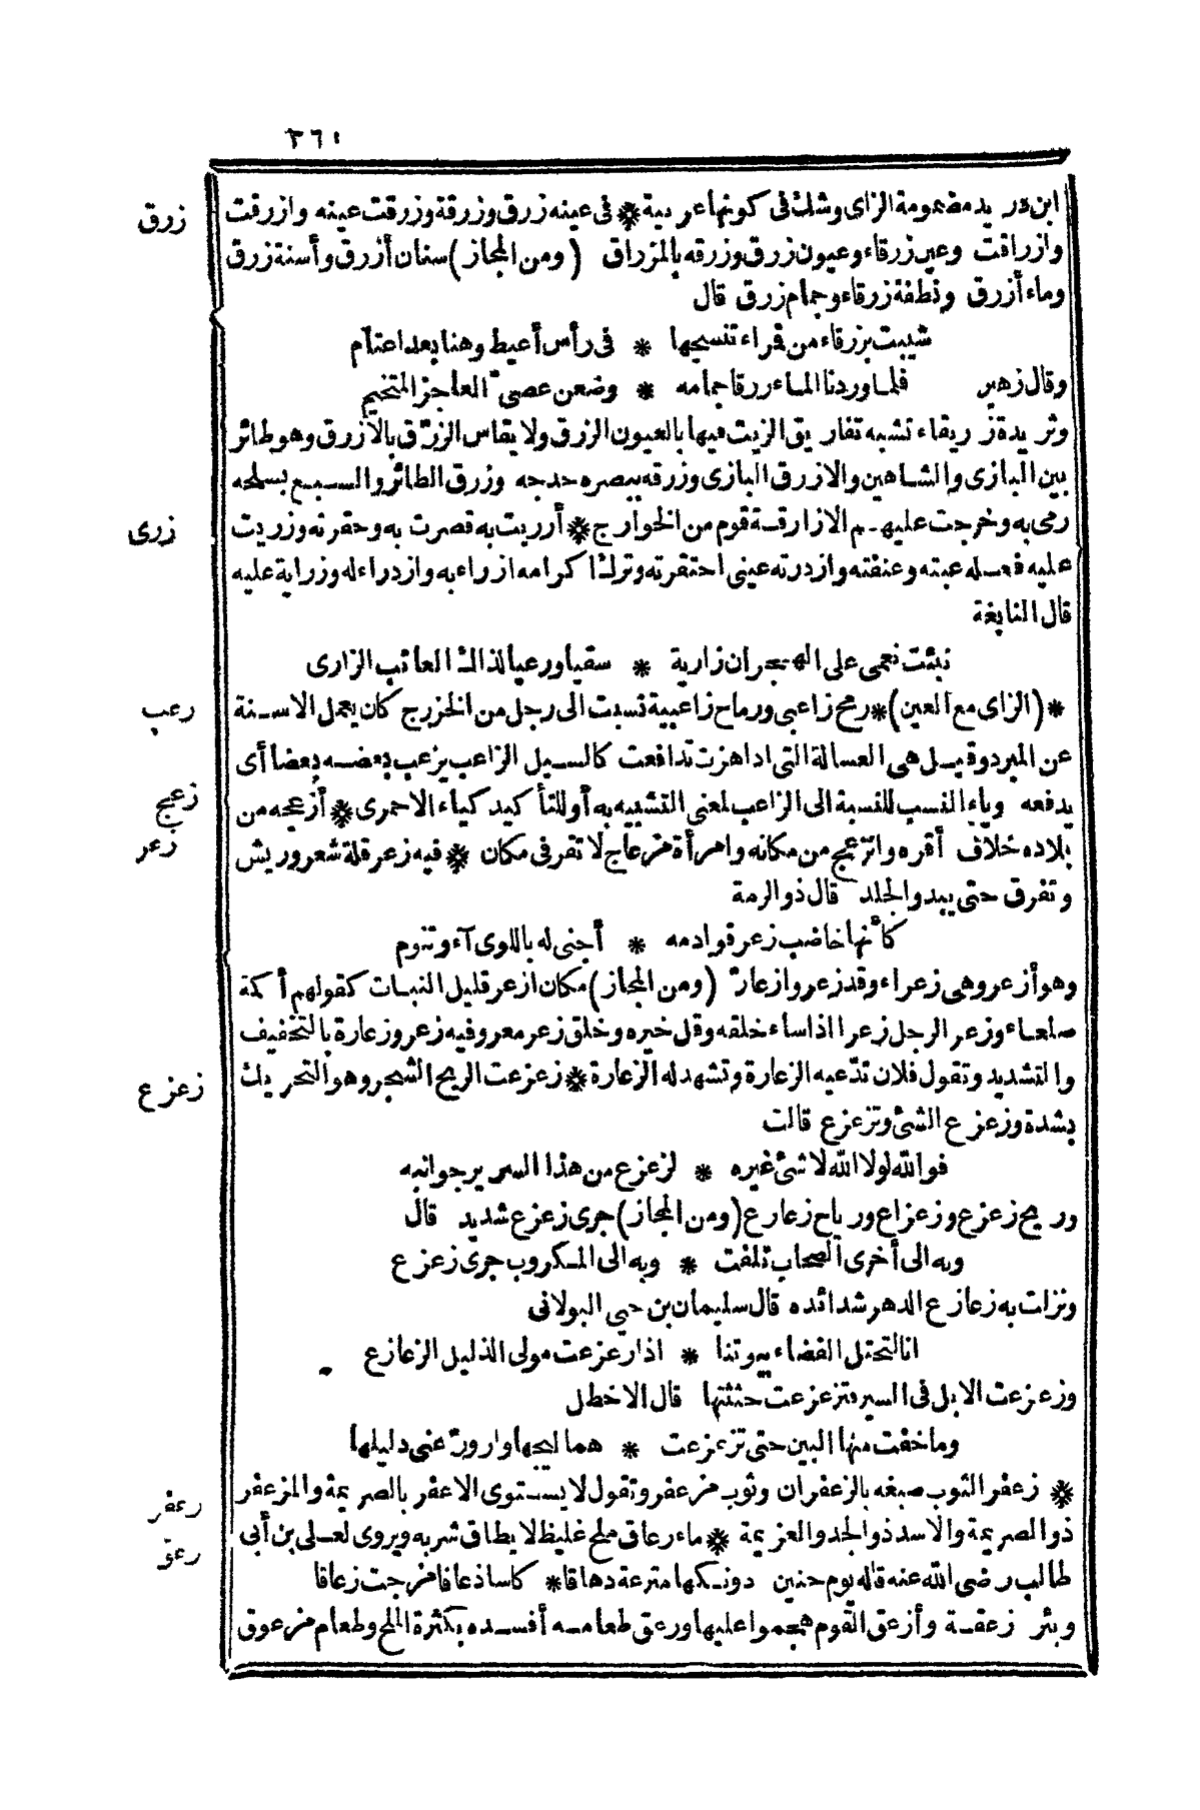 ٢٦١
ابن دريد مضمومة الزاى وشك فى كونها عربية * فى عينه زرق وزرقة وزرقت عينه وازرقت
زرق
وازراقت وعين زرقاء وعيون زرق وزرقه بالمزراق (ومن المجاز) سنان أزرق وأسنة زرق
وماء أزرق ونطفة زرقاء وجمام زرق قال
شيبت بزرقاء من قمراء تنسجها * فى رأس أعيط وهنا بعد اعتام
وقال زهير فلما وردنا الماء زرقا جمامه * وضعن عصىّ العاجز المتخيم
وثريدة زريقاء تشبه تفاريق الزيت فيها بالعيون الزرق ولا يقاس الزرّق بالازرق وهو طائر
بين البازى والشاهين والازرق البازى وزرقه ببصره حدجه وزرق الطائر والسبع بسلحه
رمى به وخرجت عليهم الازارقة قوم من الخوارج * أزريت به قصرت به وحقرته وزريت
زرى
عليه فعله عبته وعنفته وازدرته عينى احتقرته وترك اكرامه ازراء به وازدراء له وزراية عليه
قال النابغة
نبئت نعمى على الهجران زارية * سقيا ورعيا لذاك العاتب الزارى
* (الزاى مع العين) * رمح زاعبى ورماح زاعبية نسبت الى رجل من الخزرج كان يعمل الاسنة
زعب
عن المبرد وقيل هى العسالة التى اذا هزت تدافعت كالسيل الزاعب يزعب بعضه بعضا أى
يدفعه وياء النسب للنسبة الى الزاعب لمعنى التشبيه به أو للتأكيد كياء الاحمرى * أزعجه من
زعج
بلاده خلاف أقره وانزعج من مكانه وامرأة مزعاج لا تقر فى مكان * فيه زعر قلة شعر وريش
زعر
وتفرق حتى يبدو الجلد قال ذو الرمة
كأنها خاضب زعر قوادمه * أجنى له باللوى آء وتنوم
وهو أزعر وهى زعراء وقد زعر وازعارّ (ومن المجاز) مكان ازعر قليل النبات كقولهم أكمة
صلعاء وزعر الرجل زعرا اذا ساء خلقه وقل خيره وخلق زعر معروفيه زعر وزعارة بالتخفيف
والتشديد وتقول فلان تدّعيه الزعارة وتشهد له الزعارة * زعزعت الريح الشجر وهو التحريك
زعزع
بشدة وزعزع الشئ وتزعزع قالت
فوالله لولا الله لا شئ غيره * لزعزع من هذا السرير جوانبه
وريح زعزع وزعزاع ورياح زعازع (ومن المجاز) جرى زعزع شديد قال
وبه الى أخرى الصحاب تلفت * وبه الى المكروب جرى زعزع
ونزلت به زعازع الدهر شدائده قال سليمان بن حيى البولانى
انا لتحتل الفضاء بيوتنا * اذا زعزعت مولى الذليل الزعازع
وزعزعت الابل فى السير فتزعزعت حثثتها قال الاخطل
وما خفت منها البين حتى تزعزعت * هما ليجها وازورّ عنى دليلها
* زعفر الثوب صبغه بالزعفران وثوب مزعفر وتقول لا يستوى الاعفر بالصريمة والمزعفر
زعفر
ذو الصريمة والاسد ذو الجد والعزيمة * ماء زعاق ملح غليظ لا يطاق شربه ويروى لعلى بن أبى
زعق
طالب رضى الله عنه قاله يوم حنين دونكها مترعة دهاقا * كاسا ذعافا مزجت زعاقا
وبئر زعقة وأزعق القوم هجموا عليها وزعق طعامه أفسده بكثرة الملح وطعام مزعوق